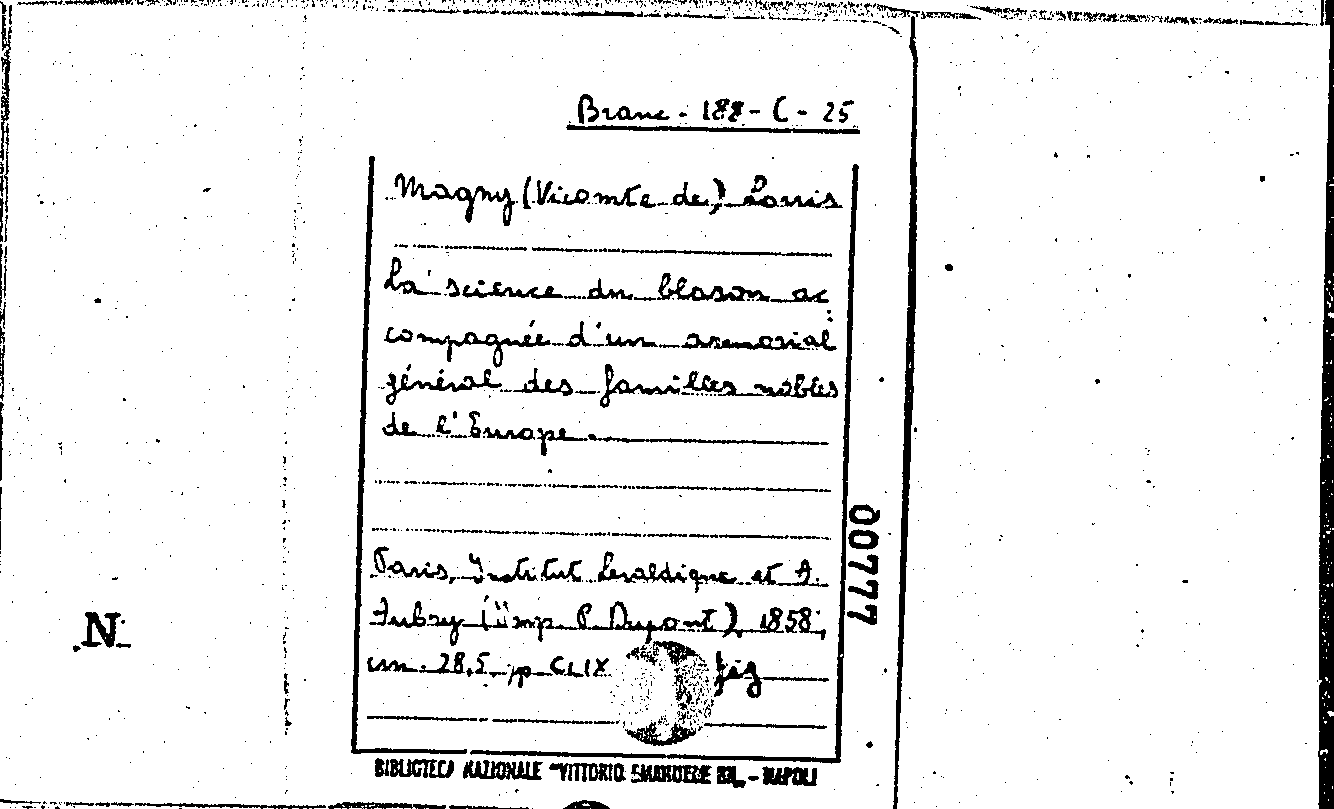 Branc - 188 - C - 25
Magny (Vicomte de) Louis
La science du blason ac
compagnée d'un armorial
général des familles nobles
de l'Europe.
Paris, Institut heraldique et A.
Aubry (imp. P. Dupont), 1858,
cm. 28,5 pp CLIX fig
00777
N.
BIBLIOTECA NAZIONALE "VITTORIO EMANUELE III" - NAPOLI